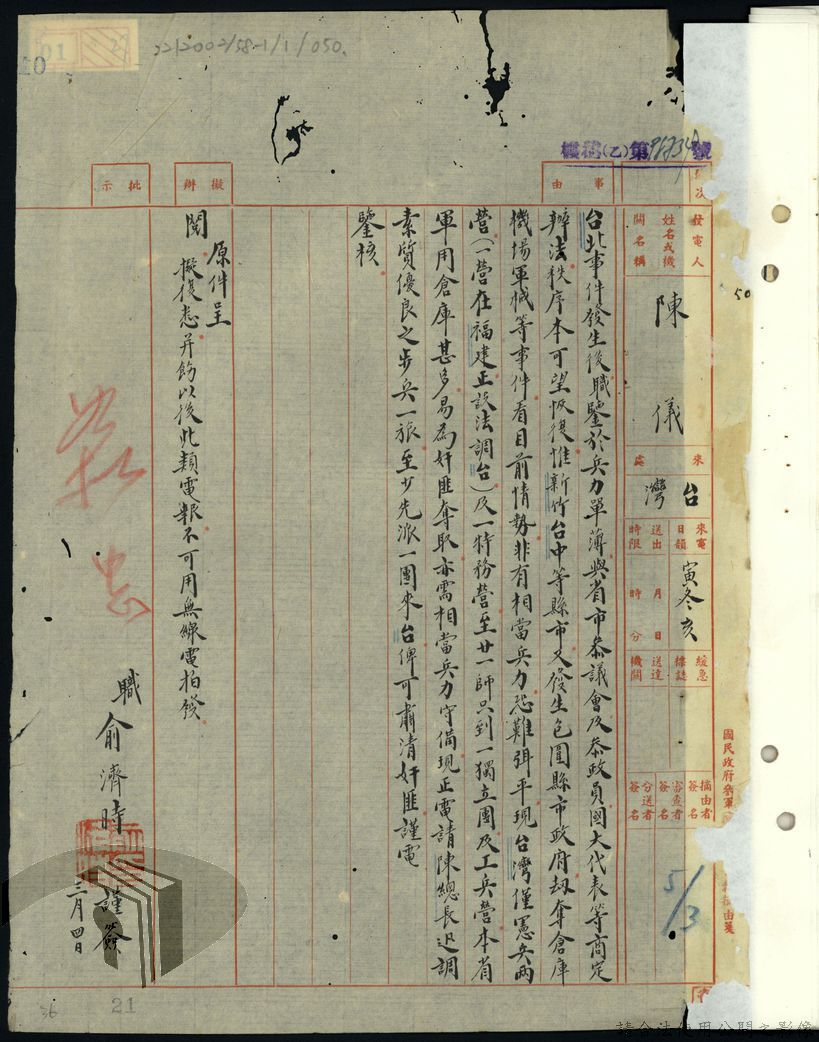 2212002/58-1/1/050.
01
機秘(乙)第 號
發電人姓名或機關名稱
陳儀
來處
台灣
來電日韻
寅冬亥
送出時限
月 日 時 分
緩急標誌
送達機關
摘由者簽名
審查者簽名
分送者簽名
5/3
事由
台北事件發生後職鑒於兵力單薄與省市參議會及參政員國大代表等商定
辦法秩序本可望恢復惟新竹台中等縣市又發生包圍縣市政府劫奪倉庫
機場軍械等事件看目前情勢非有相當兵力恐難弭平現台灣僅憲兵兩
營(一營在福建正設法調台)及一特務營至廿一師只到一獨立團及工兵營本省
軍用倉庫甚多易為奸匪奪取亦需相當兵力守備現正電請陳總長迅調
素質優良之步兵一旅至少先派一團來台俾可肅清奸匪謹電
鑒核
擬辦
原件呈
閱 擬復悉并飭以後此類電報不可用無線電拍發
批示
職俞濟時 謹簽
三月四日
50
36
21